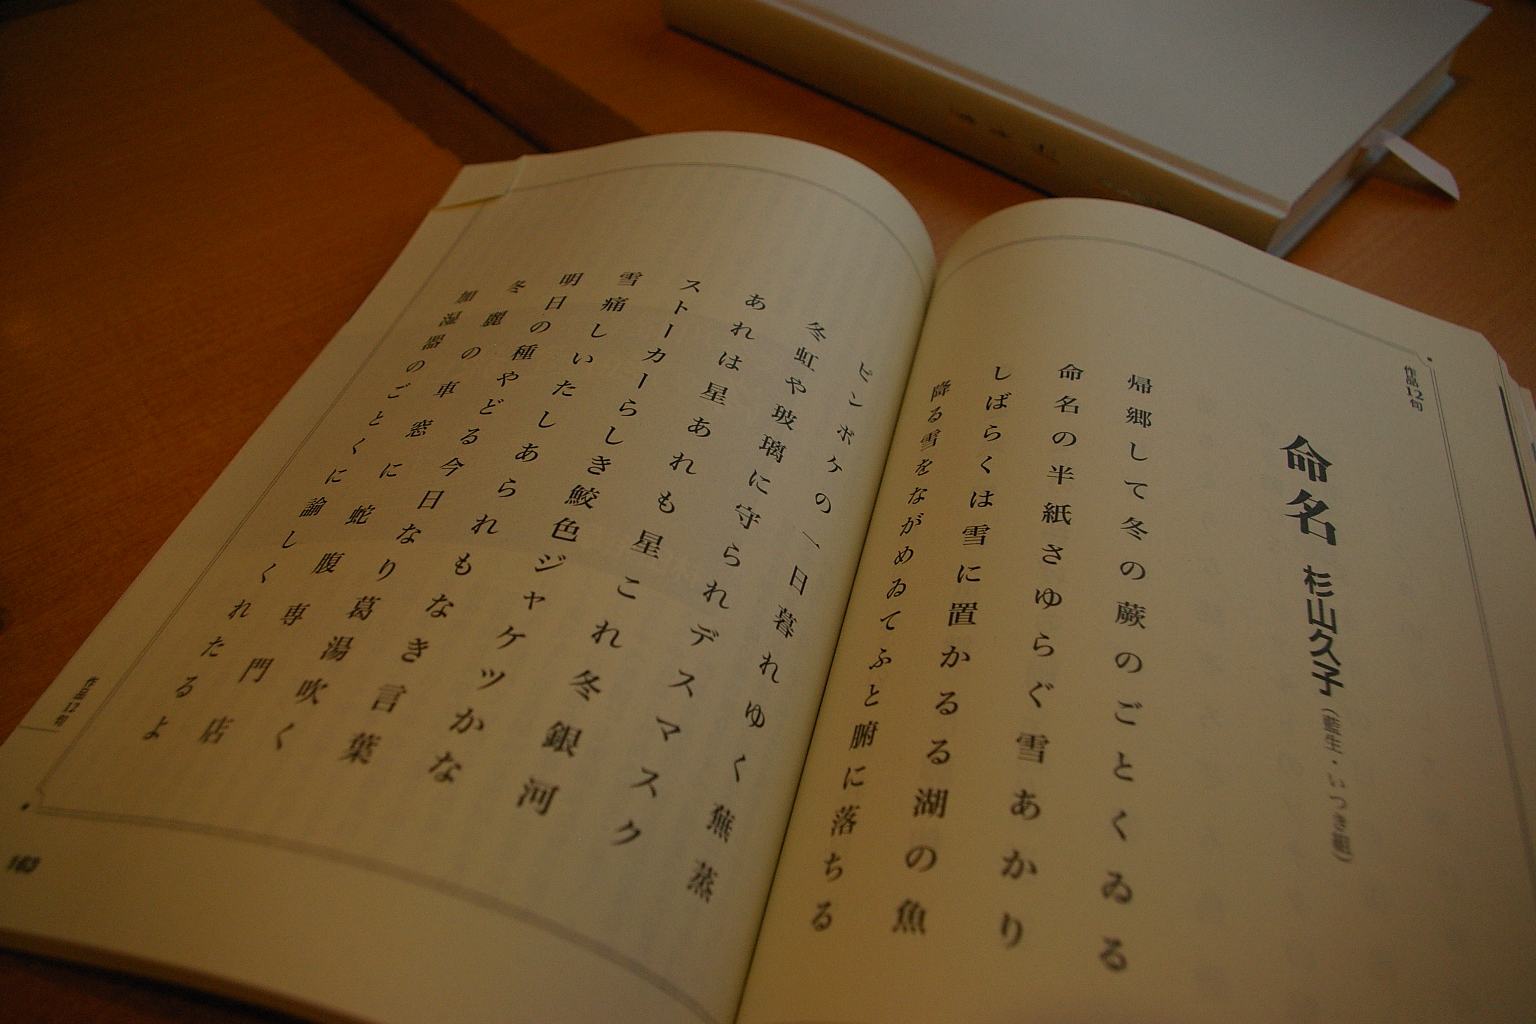 作品12句
命名 杉山久子（藍生・いつき組）
帰郷して冬の蕨のごとくゐる
命名の半紙さゆらぐ雪あかり
しばらくは雪に置かるる湖の魚
降る雪をながめゐてふと腑に落ちる
ピンボケの一日暮れゆく蕪蒸
冬虹や玻璃に守られデスマスク
あれは星あれも星これ冬銀河
ストーカーらしき鮫色ジャケツかな
雪痛しいたしあられもなき言葉
明日の種やどる今日なり葛湯吹く
冬麗の車窓に蛇腹専門店
加湿器のごとくに諭しくれたるよ
作品12句
163